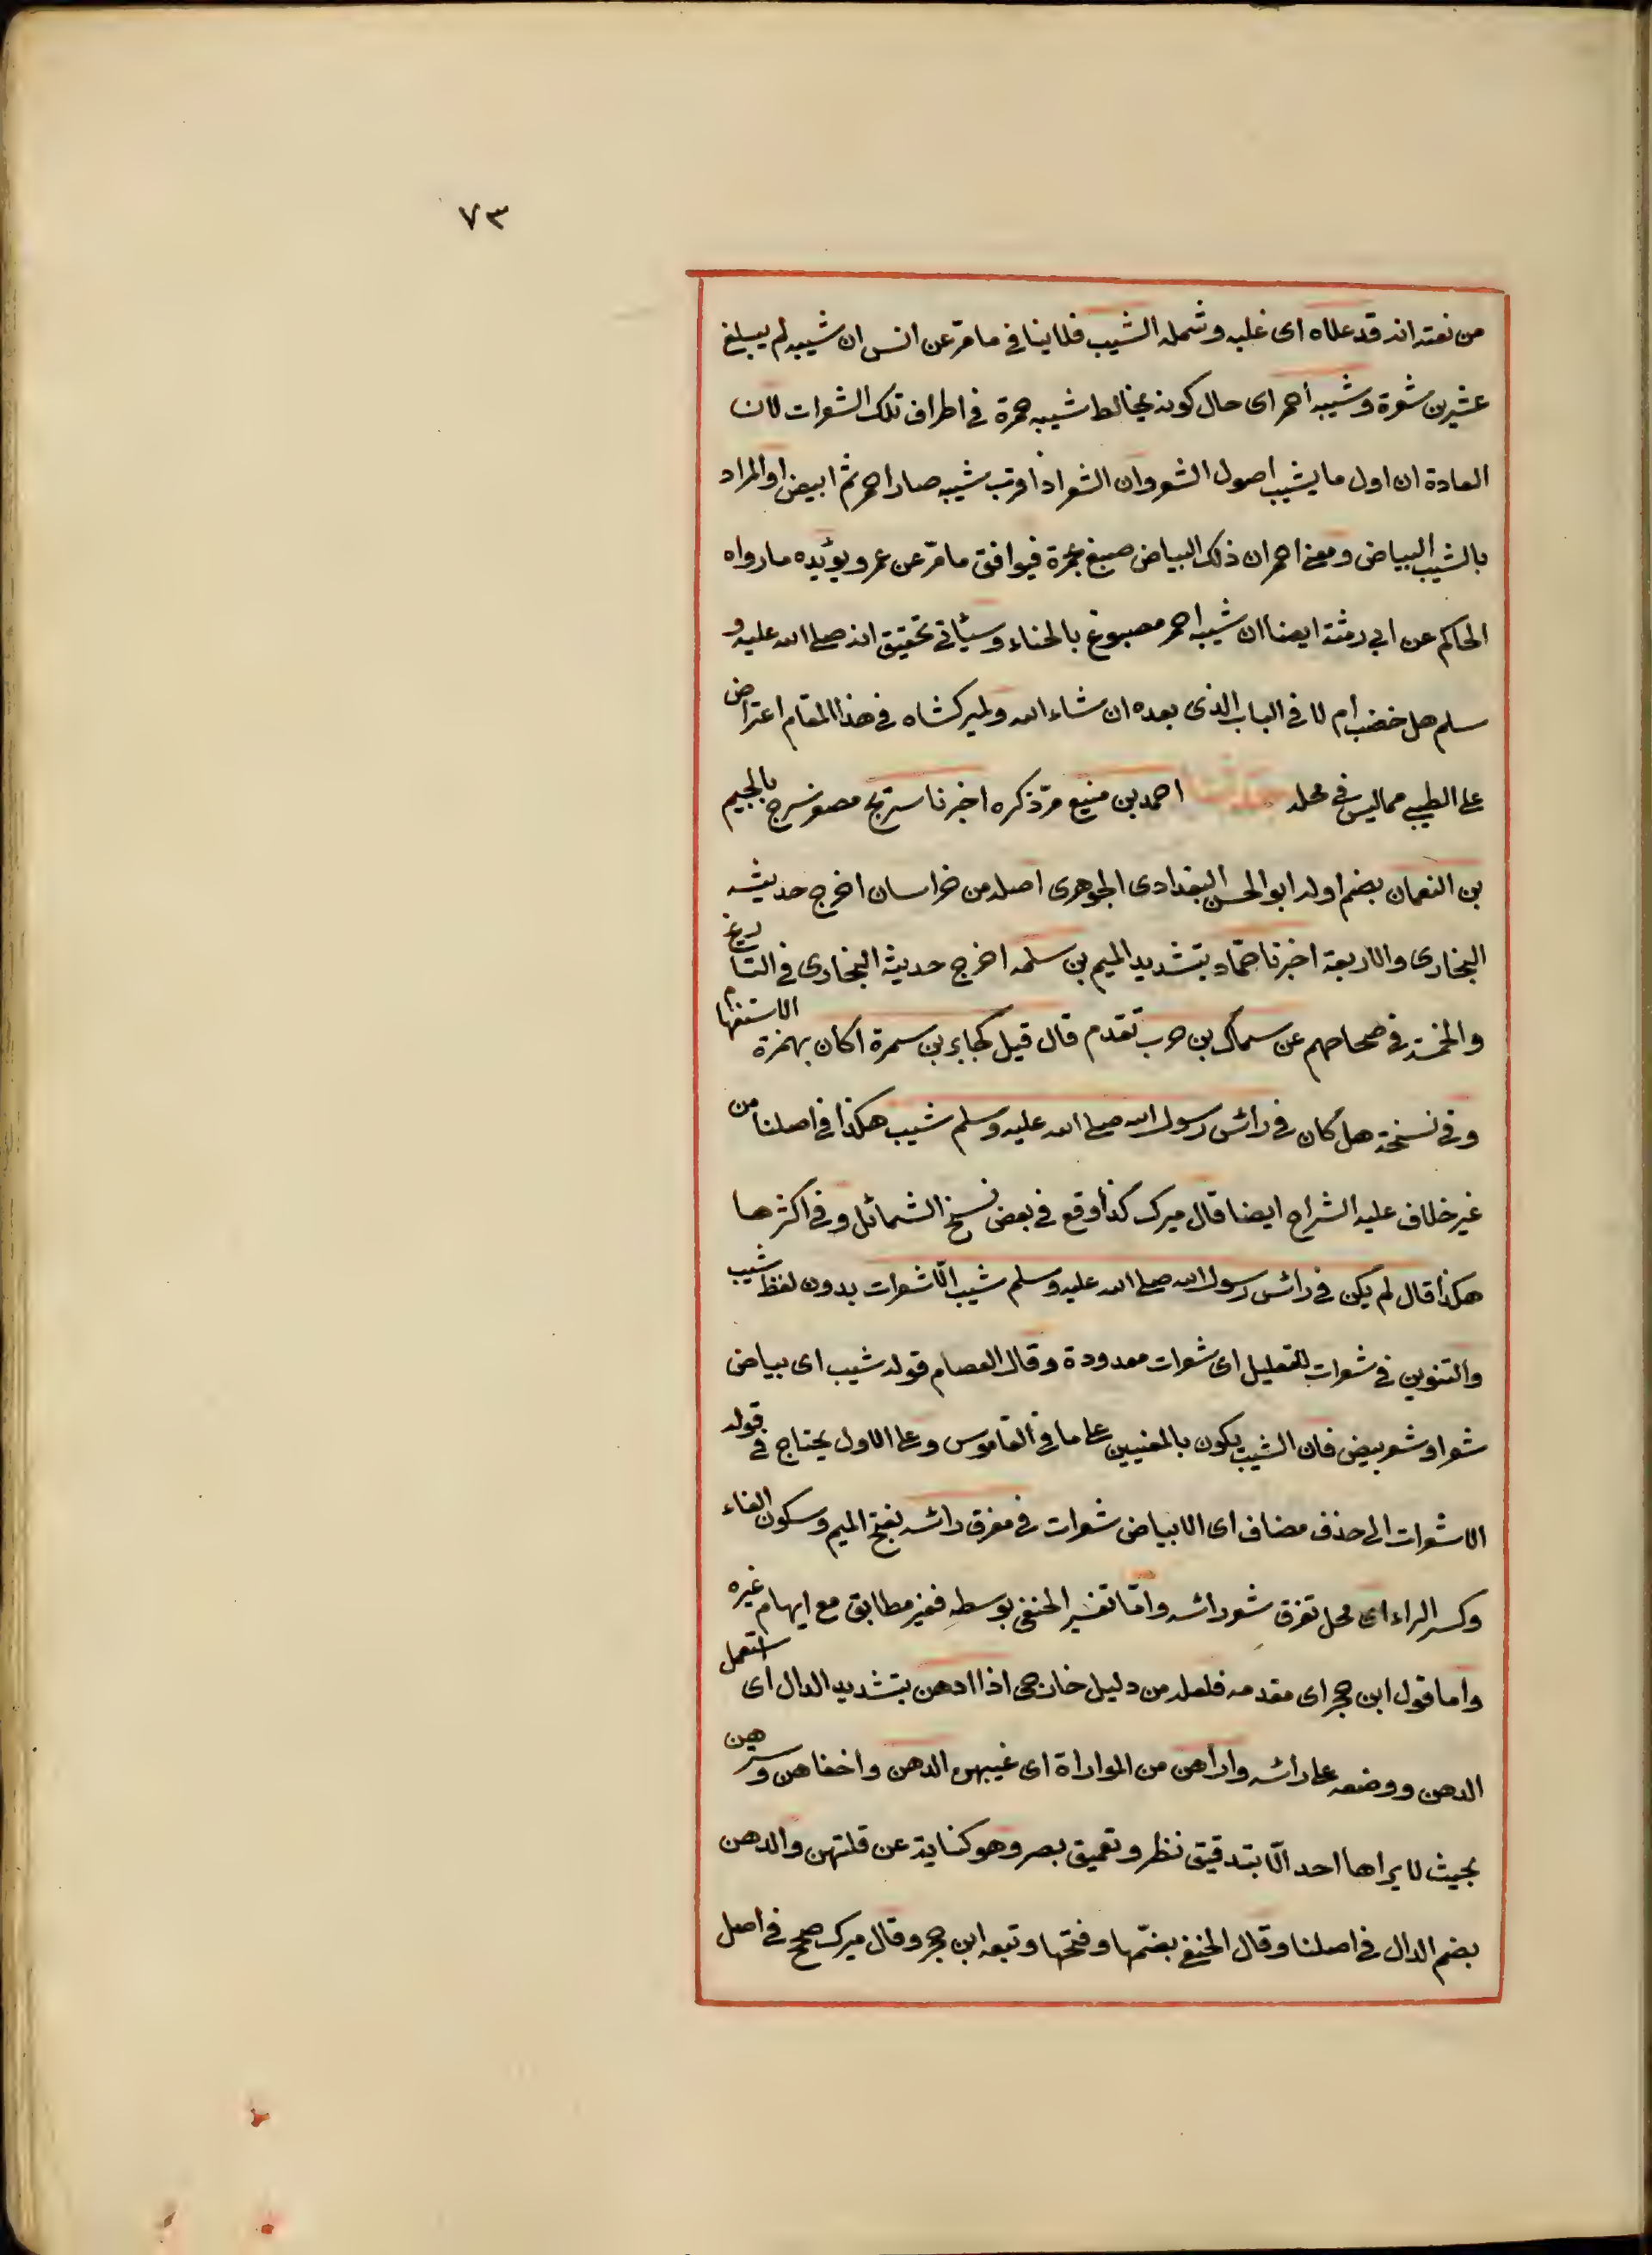 ٧٣
من نعته انه قد علاه اى غلبه وشمله الشيب فلا ينافى ما مرّ عن انس ان شيبه لم يبلغ
عشرين شعرة وشيبه احمر اى حال كونه يخالط شيبه حمرة فى اطراف تلك الشعرات لان
العادة ان اول ما يشيب اصول الشعر وان الشعر اذا قرب شيبه صار احمر ثم ابيض او المراد
بالشيب البياض ومعنى احمر ان ذلك البياض صبغ بحمرة فيوافق ما مرّ عن عمر ويؤيده ما رواه
الحاكم عن ابى رمثة ايضا ان شيبه احمر مصبوغ بالحناء وسيئاتى تحقيق انه صلى الله عليه و
سلم هل خضب أم لا فى الباب الذى بعده ان شاء الله ولميركشاه فى هذا المقام اعتراض
على الطيبى مما ليس فى محله احمد بن منيع مرّ ذكره اخبرنا سريج مصغر سرج بالجيم
بن النعمان بضم اوله ابو الحسن البغدادى الجوهرى اصله من خراسان اخرج حديثه
البخارى والاربعة اخبرنا حمّاد بتشديد الميم بن سلمه اخرج حديثه البخارى فى التاريخ
والخمسة فى صحاحهم عن سماك بن حرب تقدم قال قيل لجابر بن سمرة اكان بهمزة الاستفهام
وفى نسخة هل كان فى رائس رسول الله صلى الله عليه وسلم شيب هكذا فى اصلنا من
غير خلاف عليه الشراح ايضا قال ميرك كذا وقع فى بعض نسخ الشمائل وفى اكثرها
هكذا قال لم يكن فى رائس رسول الله صلى الله عليه وسلم شيب الّا شعرات بدون لفظ شيب
والتنوين فى شعرات للتقليل اى شعرات معدودة وقال العصام قوله شيب اى بياض
شعر او شعر بيض فان الشيب يكون بالمعنيين على ما فى القاموس وعلى الاول يحتاج فى قوله
الا شعرات الى حذف مضاف اى الا بياض شعرات فى مفرق رائسه بفتح الميم وسكون الفاء
وكسر الراء اى محل تفرق شعر رائسه وامّا تفسير الحنفى بوسطه فغير مطابق مع ايهام غيره
واما قول ابن حجر اى مقدمه فلعله من دليل خارجى اذا ادهن بتشديد الدال اى استعمل
الدهن ووضعه على رائسه واراهن من المواراة اى غيبهن الدهن واخفاهن وسترهن
بحيث لا يراها احد الّا بتدقيق نظر وتعميق بصر وهو كناية عن قلتهن والدهن
بضم الدال فى اصلنا وقال الحنفى بضمّها وفتحها وتبعه ابن حجر وقال ميرك صحح فى اصل